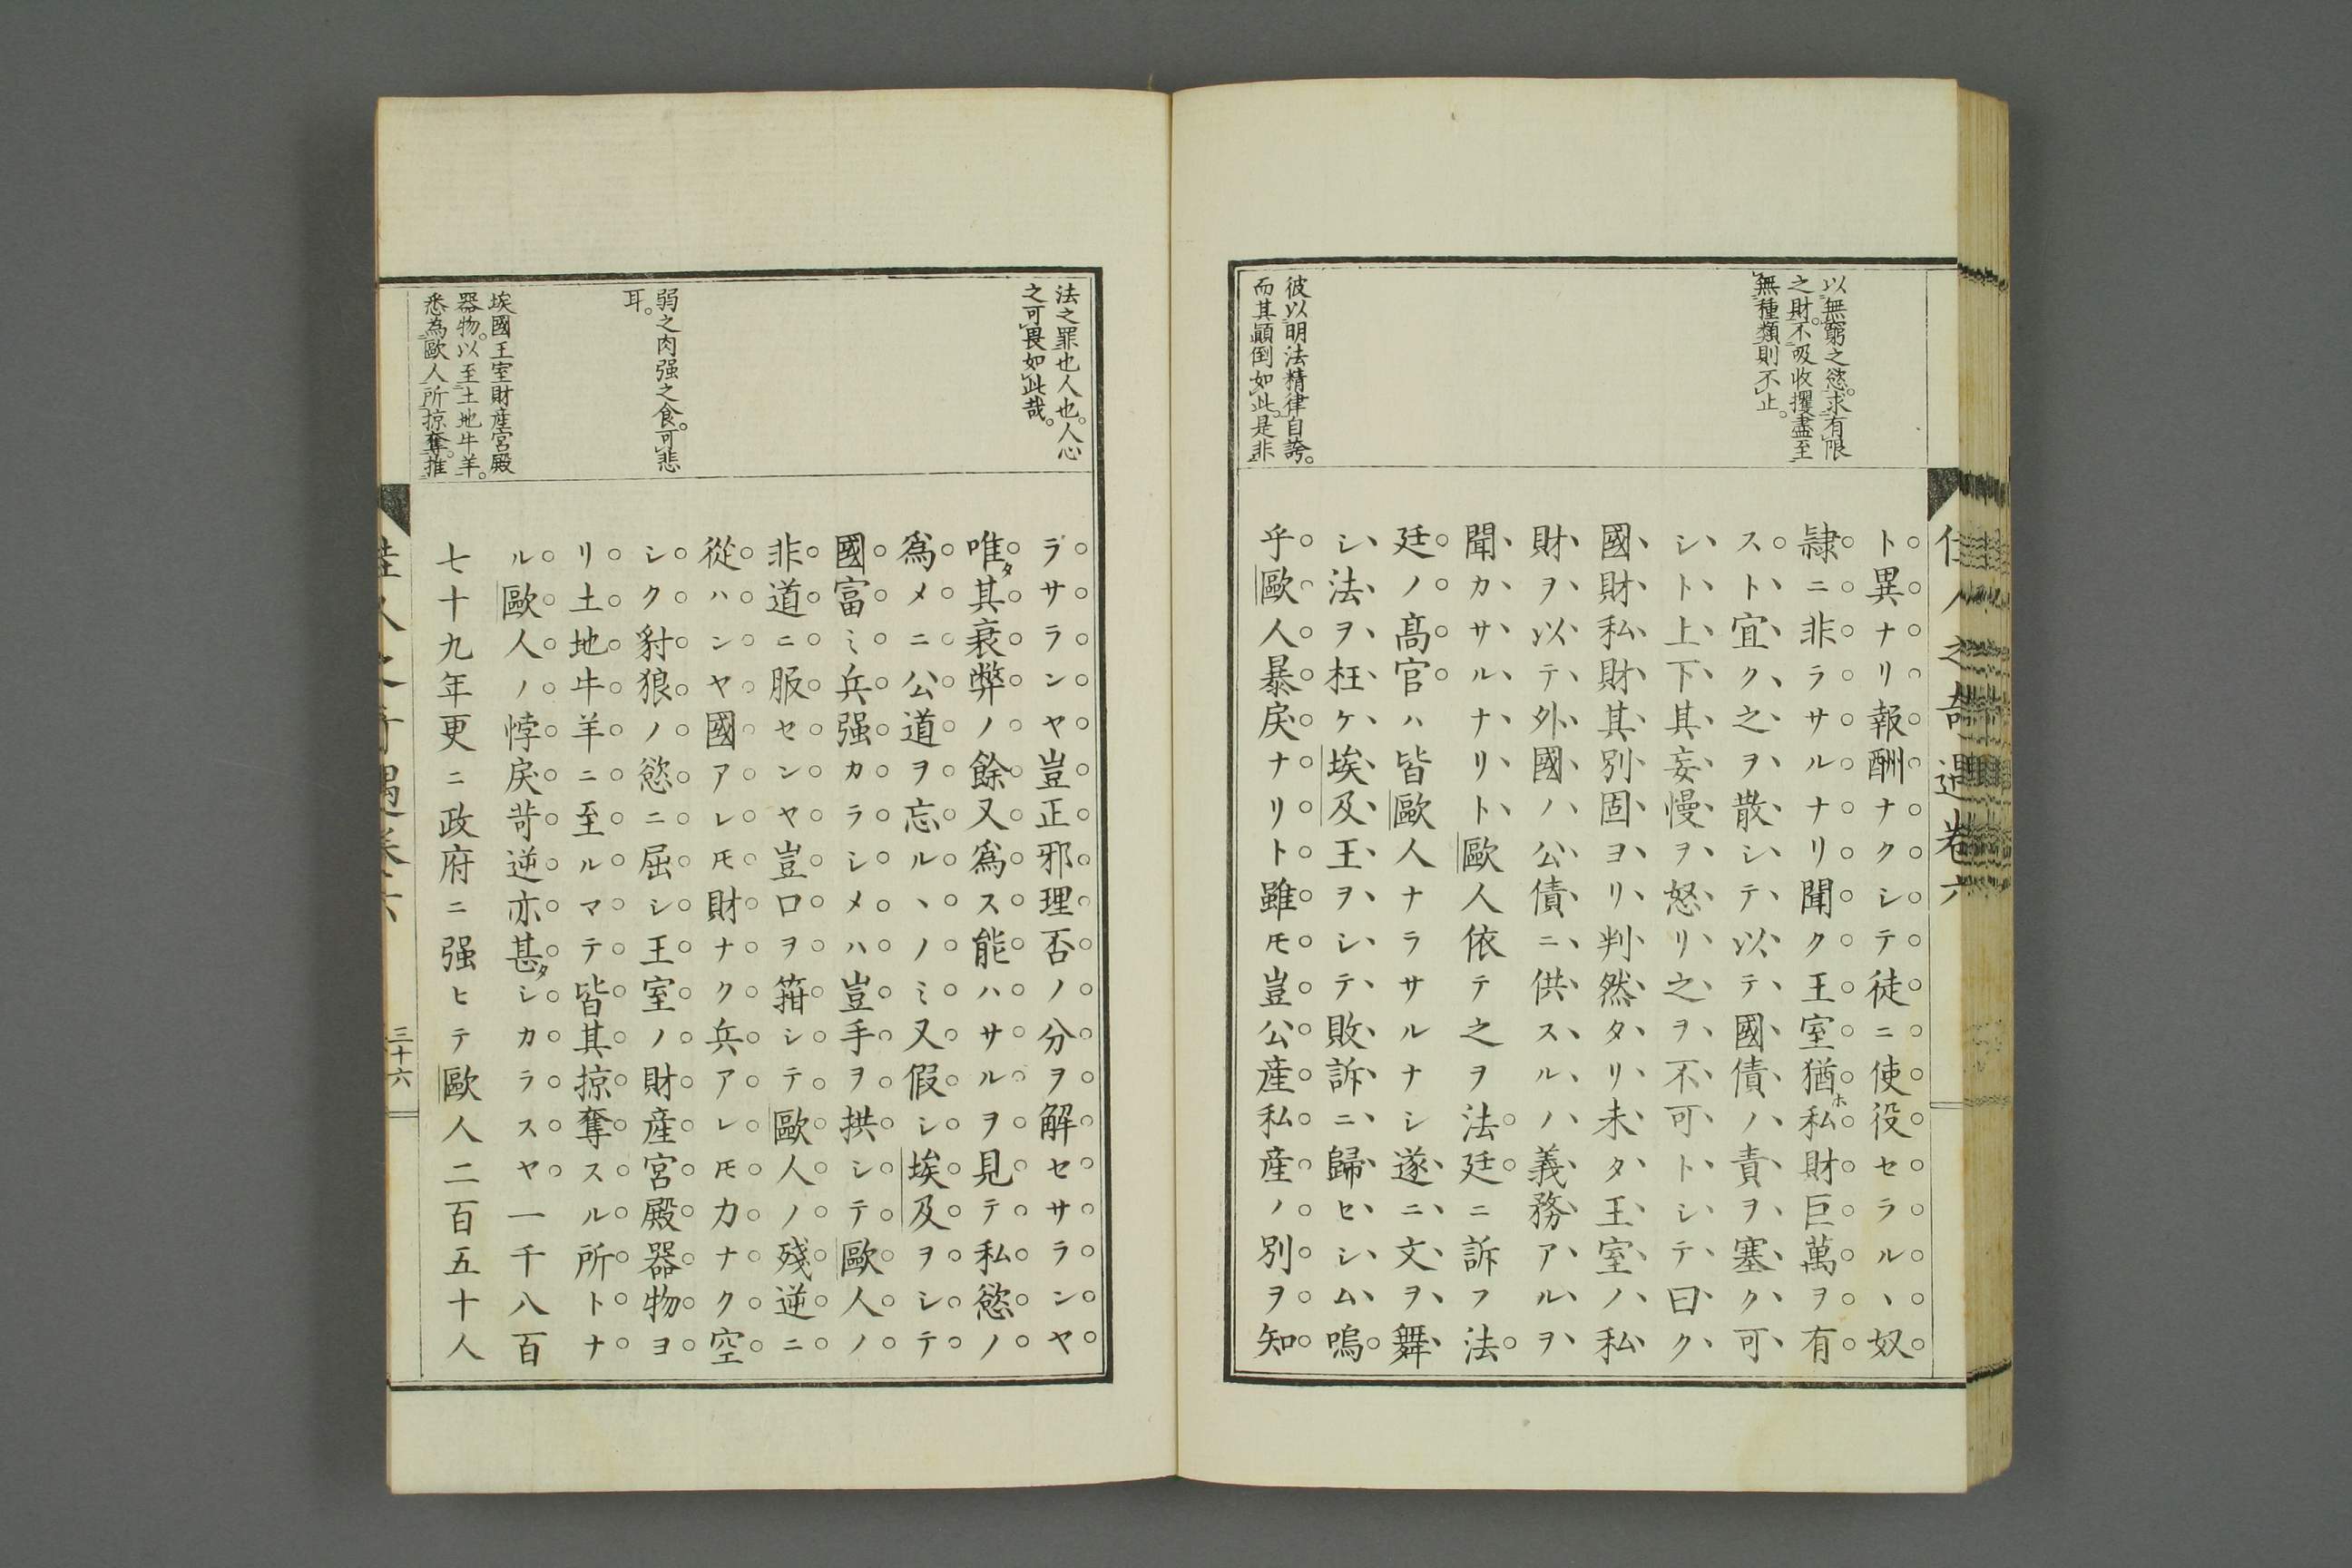 佳人之奇遇卷六
以無窮之慾。求有限
之財。不吸收攫盡至
無種類則不止。
彼以明法精律自誇。
而其顚倒如此。是非
ト異ナリ報酬ナクシテ徒ニ使役セラルヽ奴
隷ニ非ラサルナリ聞ク王室猶ホ私財巨萬ヲ有
スト宜ク之ヲ散シテ以テ國債ノ責ヲ塞ク可
シト上下其妄慢ヲ怒リ之ヲ不可トシテ曰ク
國財私財其別固ヨリ判然タリ未タ王室ノ私
財ヲ以テ外國ノ公債ニ供スルノ義務アルヲ
聞カサルナリト歐人依テ之ヲ法廷ニ訴フ法
廷ノ髙官ハ皆歐人ナラサルナシ遂ニ文ヲ舞
シ法ヲ枉ケ埃及王ヲシテ敗訴ニ歸セシム嗚
乎歐人暴戾ナリト雖モ豈公産私産ノ別ヲ知
法之罪也人也。人心
之可畏如此哉。
弱之肉强之食。可悲
耳。
埃國王室財産宮殿
器物。以至土地牛羊。
悉為歐人所掠奪。推
ラサランヤ豈正邪理否ノ分ヲ解セサランヤ
唯タ其衰弊ノ餘又爲ス能ハサルヲ見テ私慾ノ
爲メニ公道ヲ忘ルヽノミ又假シ埃及ヲシテ
國富ミ兵强カラシメハ豈手ヲ拱シテ歐人ノ
非道ニ服センヤ豈口ヲ箝シテ歐人ノ殘逆ニ
從ハンヤ國アレモ財ナク兵アレモ力ナク空
シク豺狼ノ慾ニ屈シ王室ノ財産宮殿器物ヨ
リ土地牛羊ニ至ルマテ皆其掠奪スル所トナ
ル歐人ノ悖戾苛逆亦甚タシカラスヤ一千八百
七十九年更ニ政府ニ强ヒテ歐人二百五十人
佳人之奇遇卷六
三十六